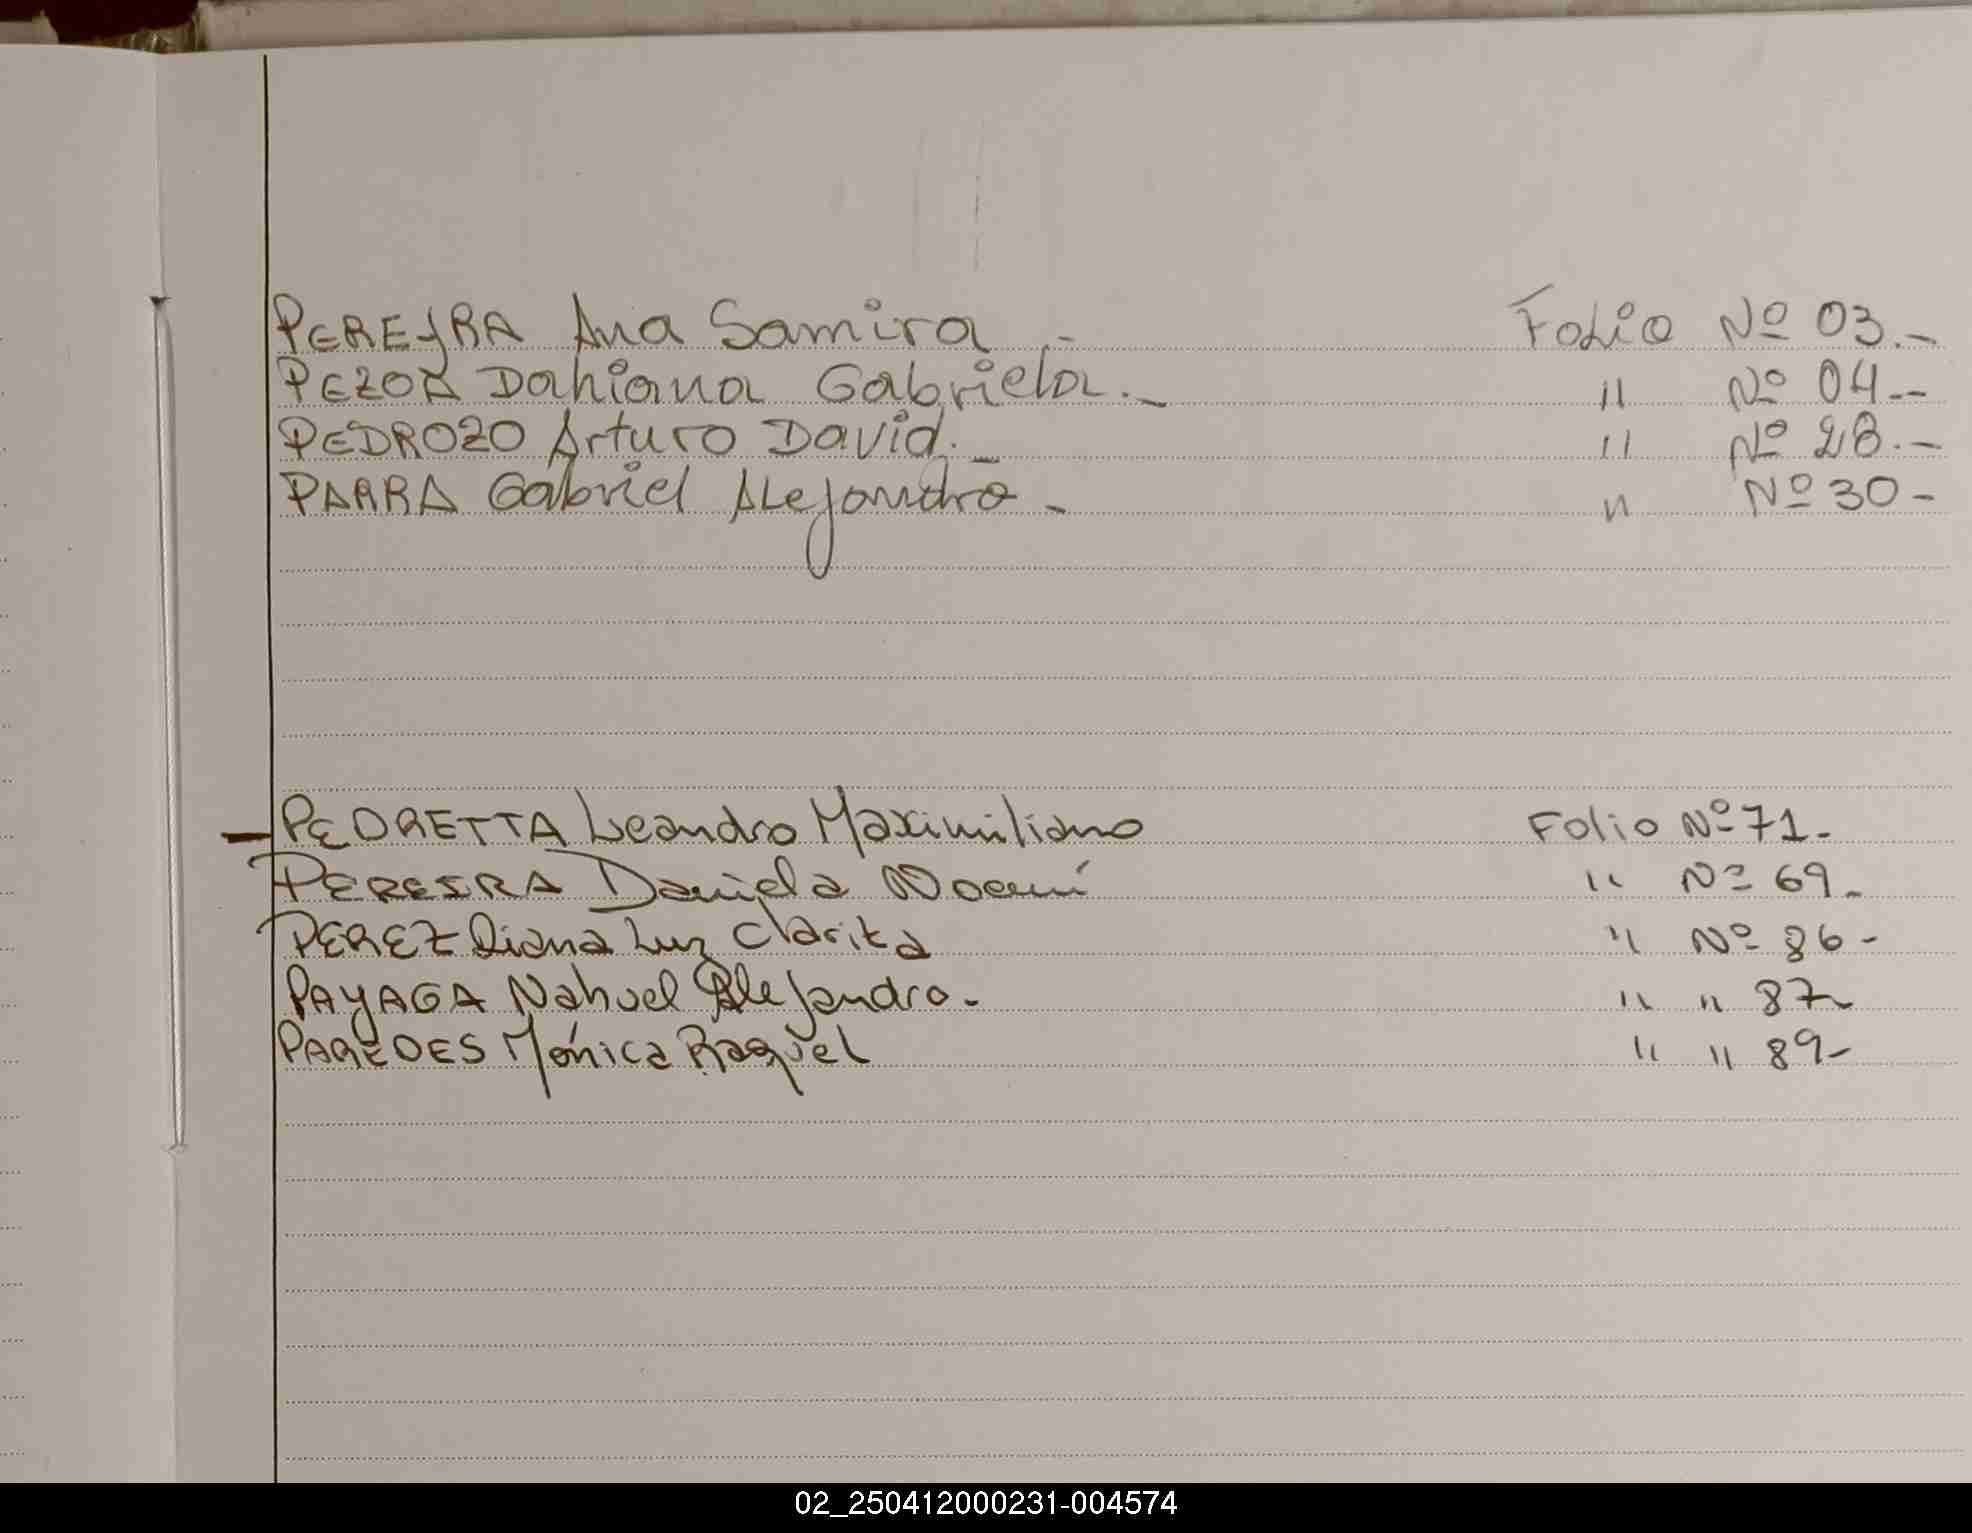 PEREYRA Ana Samira .- Folio Nº 03.-
PEZOA Dahiana Gabriela.- " Nº 04.-
PEDROZO Arturo David.- " Nº 28.-
PARRA Gabriel Alejandro - " Nº 30-
PEDRETTA Leandro Maximiliano Folio Nº 71-
PEREIRA Daniela Noemí " Nº 69-
PEREZ Diana Luz Clarita " Nº 86-
PAYAGA Nahuel Alejandro. " " 87-
PAREDES Mónica Raquel " " 89-
02_250412000231-004574